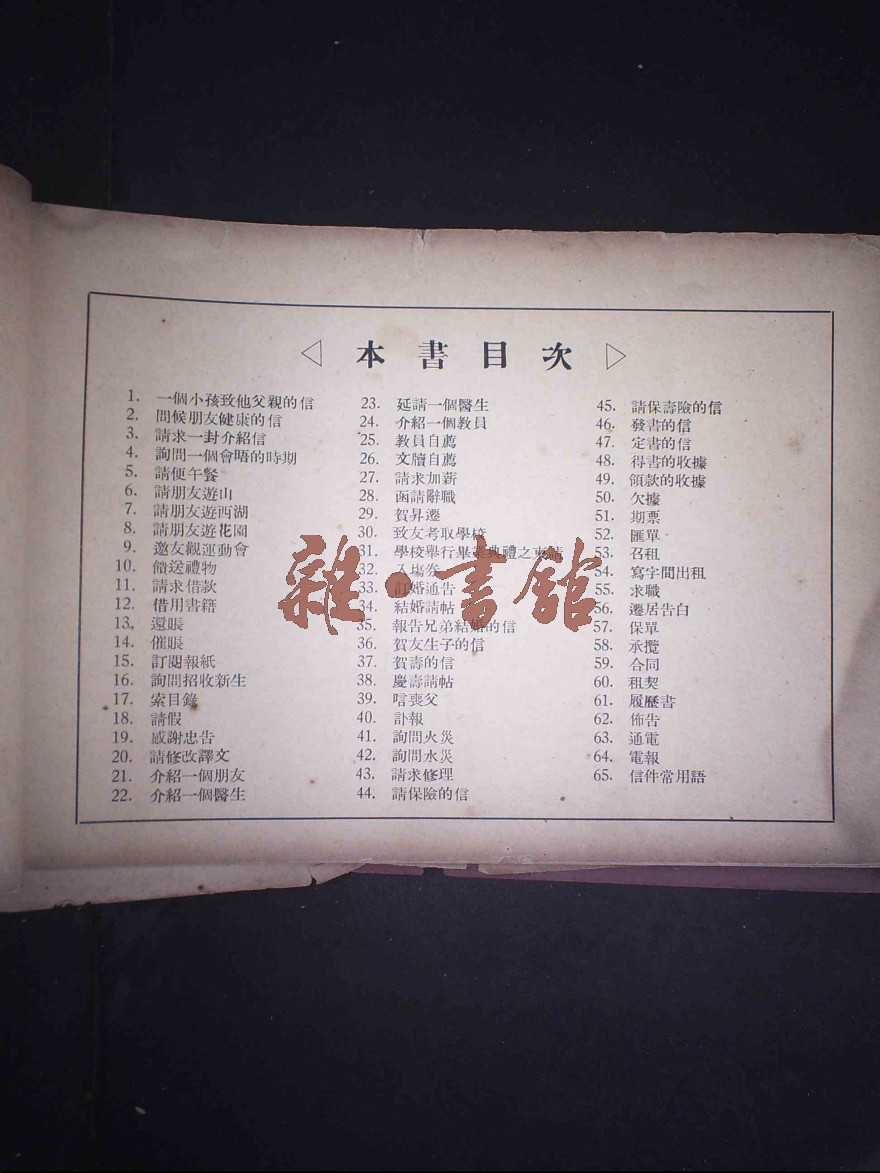 本書目次
1. 一個小孩致他父親的信
2. 問候朋友健康的信
3. 請求一封介紹信
4. 詢問一個會唔的時期
5. 請便午餐
6. 請朋友遊山
7. 請朋友遊西湖
8. 請朋友遊花園
9. 邀友觀運動會
10. 餽送禮物
11. 請求借款
12. 借用書籍
13. 還賬
14. 催賬
15. 訂閱報紙
16. 詢問招收新生
17. 索目錄
18. 請假
19. 感謝忠告
20. 請修改譯文
21. 介紹一個朋友
22. 介紹一個醫生
23. 延請一個醫生
24. 介紹一個教員
25. 教員自薦
26. 文牘自薦
27. 請求加薪
28. 函請辭職
29. 賀昇遷
30. 致友考取學校
31. 學校舉行畢業典禮之柬請
32. 入場券
33. 訂婚通告
34. 結婚請帖
35. 報告兄弟結婚的信
36. 賀友生子的信
37. 賀壽的信
38. 慶壽請帖
39. 唁喪父
40. 訃報
41. 詢問火災
42. 詢問水災
43. 請求修理
44. 請保險的信
45. 請保壽險的信
46. 發書的信
47. 定書的信
48. 得書的收據
49. 領款的收據
50. 欠據
51. 期票
52. 匯單
53. 召租
54. 寫字間出租
55. 求職
56. 遷居告白
57. 保單
58. 承攬
59. 合同
60. 租契
61. 履歷書
62. 佈告
63. 通電
64. 電報
65. 信件常用語
雜·書館